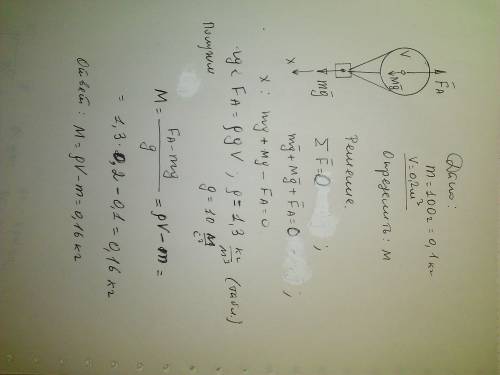 Дано:
m = 100г = 0,1 кг
V = 0,2 м³
Определить: M
Решение.
ΣF̄ = 0 ;
mḡ + Mḡ + F̄A = 0 ;
x: mg + Mg − FA = 0
где FA = ρgV, ρ = 1,3 кг/м³ (табл.)
g = 10 м/с²
Получим
M = (FA − mg)/g = ρV − m =
= 1,3 · 0,2 − 0,1 = 0,16 кг
Ответ: M = ρV − m = 0,16 кг
F̄A
V
Mḡ
mḡ
x